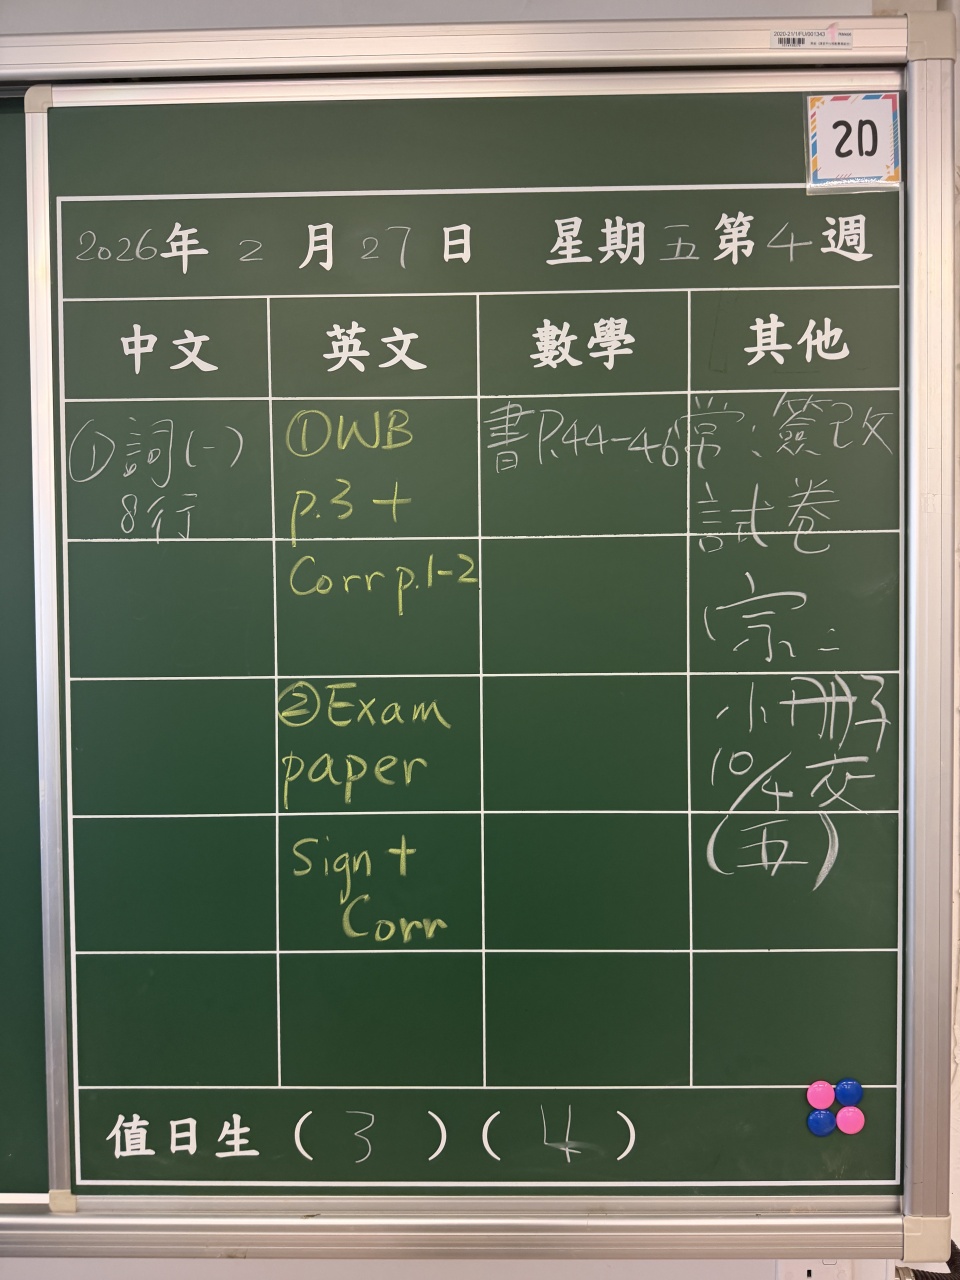 2020-21/1/FU/001343
2D
2026年 2 月 27 日 星期 五 第 4 週
中文 英文 數學 其他
①詞(一)
8行
①WB
p.3 +
Corr p.1-2
②Exam
paper
Sign +
Corr
書P.44-46
常：簽改
試卷
宗：
小冊子
10/4 交
(五)
值日生 ( 3 ) ( 4 )